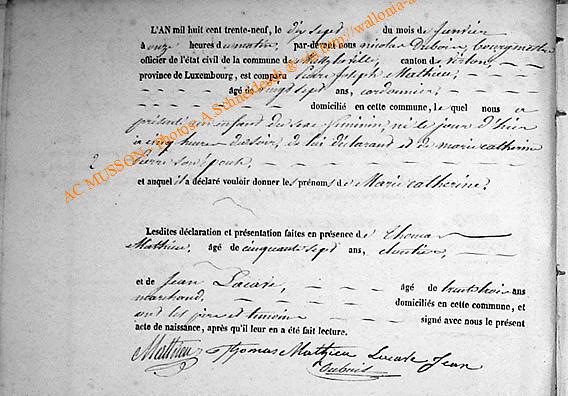 L'AN mil huit cent trente-neuf, le dix sept du mois de Janvier
à onze heures du matin, par-devant nous nicolas Dubois, bourgmestre
officier de l'état civil de la commune de canton de
province de Luxembourg, est comparu Pierre Joseph Mathieu,
âgé de vingt sept ans, cordonnier,
domicilié en cette commune, lequel nous a
présenté un enfant du sexe féminin, né le jour d'hier
à cinq heures du soir, de lui déclarant et de marie catherine
son épouse,
2
et auquel il a déclaré vouloir donner les prénoms de Marie catherine.
Lesdites déclaration et présentation faites en présence de Thomas
Mathieu, âgé de cinquante sept ans, cloutier,
et de Jean Lacave, âgé de trente trois ans
marchand, domiciliés en cette commune, et
ont les père et témoins signé avec nous le présent
acte de naissance, après qu'il leur en a été fait lecture.
Mathieu Thomas Mathieu Lacave Jean
Dubois
AC MUSSON, Photos: A.Schneiders @ http://wallonia-a